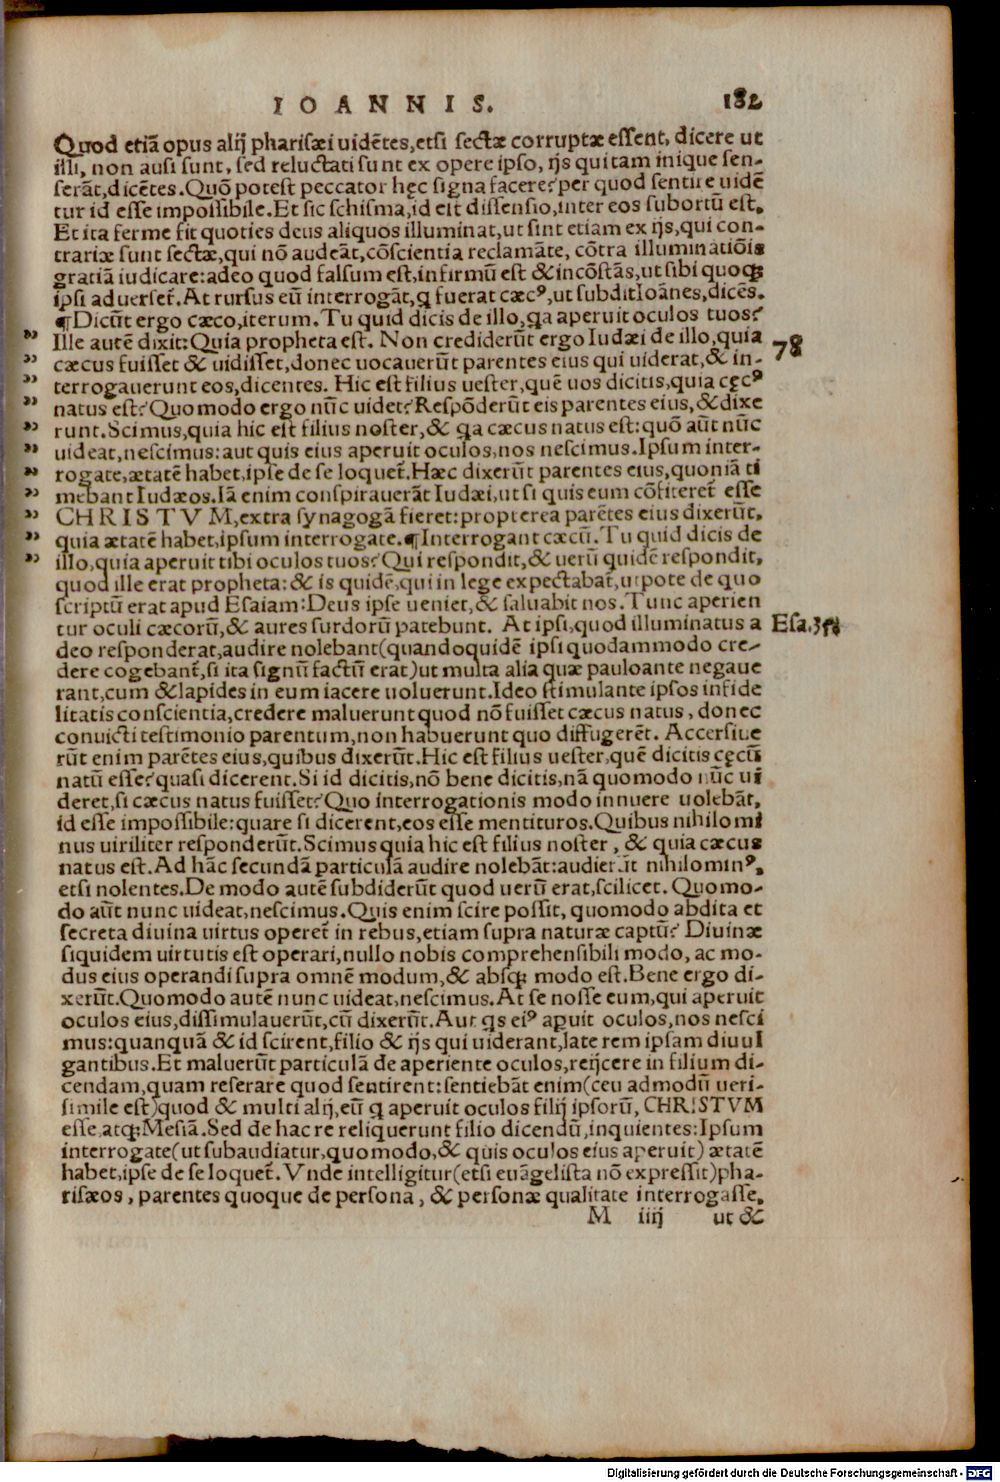 IOANNIS. 182
Quod etiã opus alij pharisæi uidẽtes, etsi sectæ corruptæ essent, dicere ut
illi, non ausi sunt, sed reluctati sunt ex opere ipso, ijs qui tam inique sen-
serãt, dicẽtes. Quõ potest peccator hęc signa facere? per quod sentire uidẽ
tur id esse impossibile. Et sic schisma, id est dissensio, inter eos subortũ est.
Et ita ferme fit quoties deus aliquos illuminat, ut sint etiam ex ijs, qui con-
trariæ sunt sectæ, qui nõ audeãt, cõscientia reclamãte, cõtra illuminatiõis
gratiã iudicare: adeo quod falsum est, infirmũ est & incõstãs, ut sibi quoqꝫ
ipsi aduerset̃. At rursus eũ interrogãt, q fuerat cæcꝰ, ut subdit Ioãnes, dicẽs.
¶Dicũt ergo cæco, iterum. Tu quid dicis de illo, qa aperuit oculos tuos?
Ille autẽ dixit: Quia propheta est. Non crediderũt ergo Iudæi de illo, quia 78
cæcus fuisset & uidisset, donec uocauerũt parentes eius qui uiderat, & in-
terrogauerunt eos, dicentes. Hic est filius uester, quẽ uos dicitis, quia cęcꝰ
natus est? Quomodo ergo nũc uidet? Respõderũt eis parentes eius, & dixe
runt. Scimus, quia hic est filius noster, & qa cæcus natus est: quõ aũt nũc
uideat, nescimus: aut quis eius aperuit oculos, nos nescimus. Ipsum inter-
rogate, ætatẽ habet, ipse de se loquet̃. Hæc dixerũt parentes eius, quoniã ti
mebant Iudæos. Iã enim conspirauerãt Iudæi, ut si quis eum cõfiteret̃ esse
CHRISTVM, extra synagogã fieret: propterea parẽtes eius dixerũt,
quia ætatẽ habet, ipsum interrogate. ¶Interrogant cæcũ. Tu quid dicis de
illo, quia aperuit tibi oculos tuos? Qui respondit, & uerũ quidẽ respondit,
quod ille erat propheta: & is quidẽ, qui in lege expectabat̃, utpote de quo
scriptũ erat apud Esaiam: Deus ipse ueniet, & saluabit nos. Tunc aperien
tur oculi cæcorũ, & aures surdorũ patebunt. At ipsi, quod illuminatus a Esa.35.
deo responderat, audire nolebant (quandoquidẽ ipsi quodammodo cre-
dere cogebant̃, si ita signũ factũ erat) ut multa alia quæ pauloante negaue
rant, cum & lapides in eum iacere uoluerunt. Ideo stimulante ipsos infide
litatis conscientia, credere maluerunt quod nõ fuisset cæcus natus, donec
conuicti testimonio parentum, non habuerunt quo diffugerẽt. Accersiue
rũt enim parẽtes eius, quibus dixerũt. Hic est filius uester, quẽ dicitis cęcũ
natũ esse? quasi dicerent. Si id dicitis, nõ bene dicitis, nã quomodo nũc ui
deret, si cæcus natus fuisset? Quo interrogationis modo innuere uolebãt,
id esse impossibile: quare si dicerent, eos esse mentituros. Quibus nihilomi
nus uiriliter responderũt. Scimus quia hic est filius noster, & quia cæcus
natus est. Ad hãc secundã particulã audire nolebãt: audierũt nihilominꝰ,
etsi nolentes. De modo autẽ subdiderũt quod uerũ erat, scilicet. Quomo-
do aũt nunc uideat, nescimus. Quis enim scire possit, quomodo abdita et
secreta diuina uirtus operet̃ in rebus, etiam supra naturæ captũ? Diuinæ
siquidem uirtutis est operari, nullo nobis comprehensibili modo, ac mo-
dus eius operandi supra omnẽ modum, & absqꝫ modo est. Bene ergo di-
xerũt. Quomodo autẽ nunc uideat, nescimus. At se nosse eum, qui aperuit
oculos eius, dissimulauerũt, cũ dixerũt. Aut qs eiꝰ apuit oculos, nos nesci
mus: quanquã & id scirent, filio & ijs qui uiderant, late rem ipsam diuul
gantibus. Et maluerũt particulã de aperiente oculos, reijcere in filium di-
cendam, quam reserare quod sentirent: sentiebãt enim (ceu admodũ ueri-
simile est) quod & multi alij, eũ q aperuit oculos filij ipsorũ, CHRISTVM
esse, atqꝫ Mesiã. Sed de hac re reliquerunt filio dicendũ, inquientes: Ipsum
interrogate (ut subaudiatur, quomodo, & quis oculos eius aperuit) ætatẽ
habet, ipse de se loquet̃. Vnde intelligitur (etsi euãgelista nõ expressit) pha-
risæos, parentes quoque de persona, & personæ qualitate interrogasse,
M iiij ut &
Digitalisierung gefördert durch die Deutsche Forschungsgemeinschaft - DFG